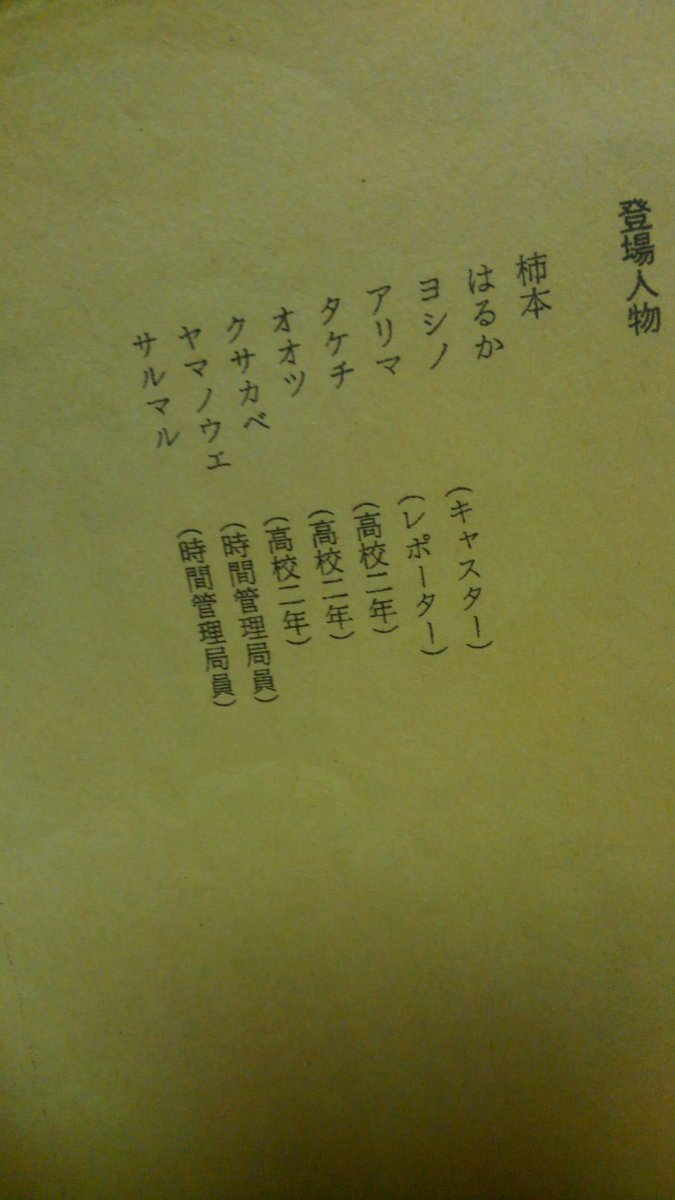 登場人物
柿本
はるか
ヨシノ (キャスター)
アリマ (レポーター)
タケチ (高校二年)
オオツ (高校二年)
クサカベ (高校二年)
ヤマノウエ (時間管理局員)
サルマル (時間管理局員)